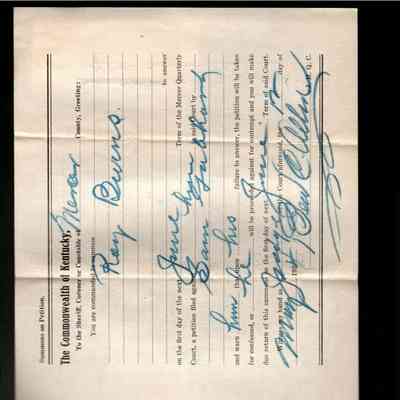 Summons on Petition.
The Commonwealth of Kentucky,
To the Sheriff, Coroner or Constable of Mercer County, Greeting:
You are commanded to summon
Ray Burns.
to answer
on the first day of the next June Term of the Mercer Quarterly
Court, a petition filed against him in said Court by
Sam
and warn him that upon his failure to answer, the petition will be taken
for confessed, or he will be proceeded against for contempt and you will make
due return of this summons on the first day of next June Term of said Court.
Witness my hand as of said Court day of